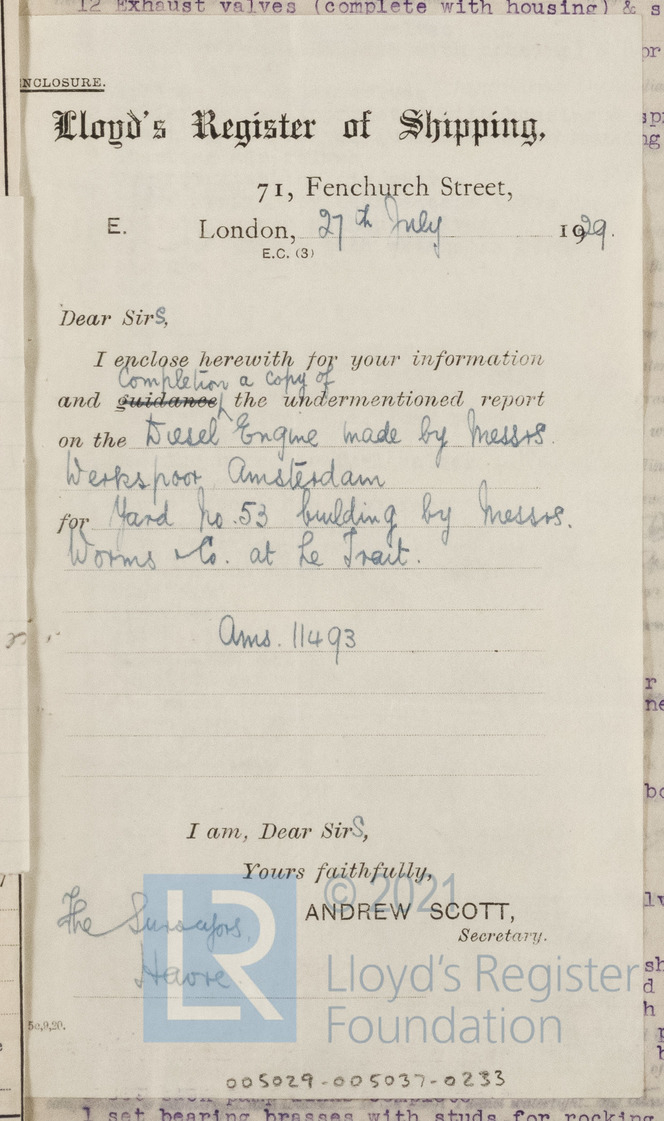 12 Exhaust valves (complete with housing) & s
NCLOSURE.
Lloyd's Register of Shipping,
71, Fenchurch Street,
E. London, 27th July 1929.
E.C. (3)
Dear SirS,
I enclose herewith for your information
Completion a copy of
and guidance, the undermentioned report
on the Diesel Engine made by Messrs.
Werkspoor Amsterdam
for Yard No. 53 building by Messrs.
Worms & Co. at Le Trait.
Ams. 11493
I am, Dear SirS,
Yours faithfully,
© 2021
ANDREW SCOTT,
Secretary.
The Surveyors,
Havre.
LR
Lloyd's Register
Foundation
5c,9,20.
005029-005037-0233
1 set bearing brasses with studs for rocking